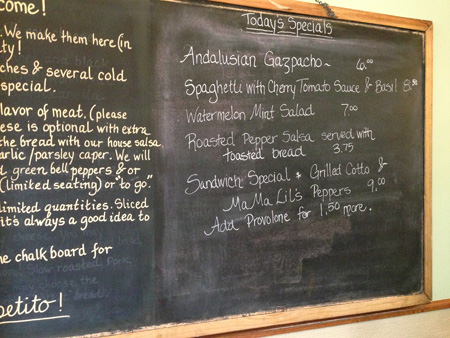 come!
. We make them here (in
ty!
ches & several cold
special.
lavor of meat. (please
ese is optional with extra
the bread with our house salsa
arlic/parsley caper. We will
d green bell peppers & or
(limited seating) or "to go."
limited quantities. Sliced
it's always a good idea to
he chalk board for
petito!
Today's Specials
Andalusian Gazpacho ~ 6.00
Spaghetti with Cherry Tomato Sauce & Basil
Watermelon Mint Salad 7.00
Roasted Pepper Salsa served with
toasted bread 3.75
Sandwich Special * Grilled Cotto &
MaMa Lil's Peppers 9.00
Add Provolone for 1.50 more.